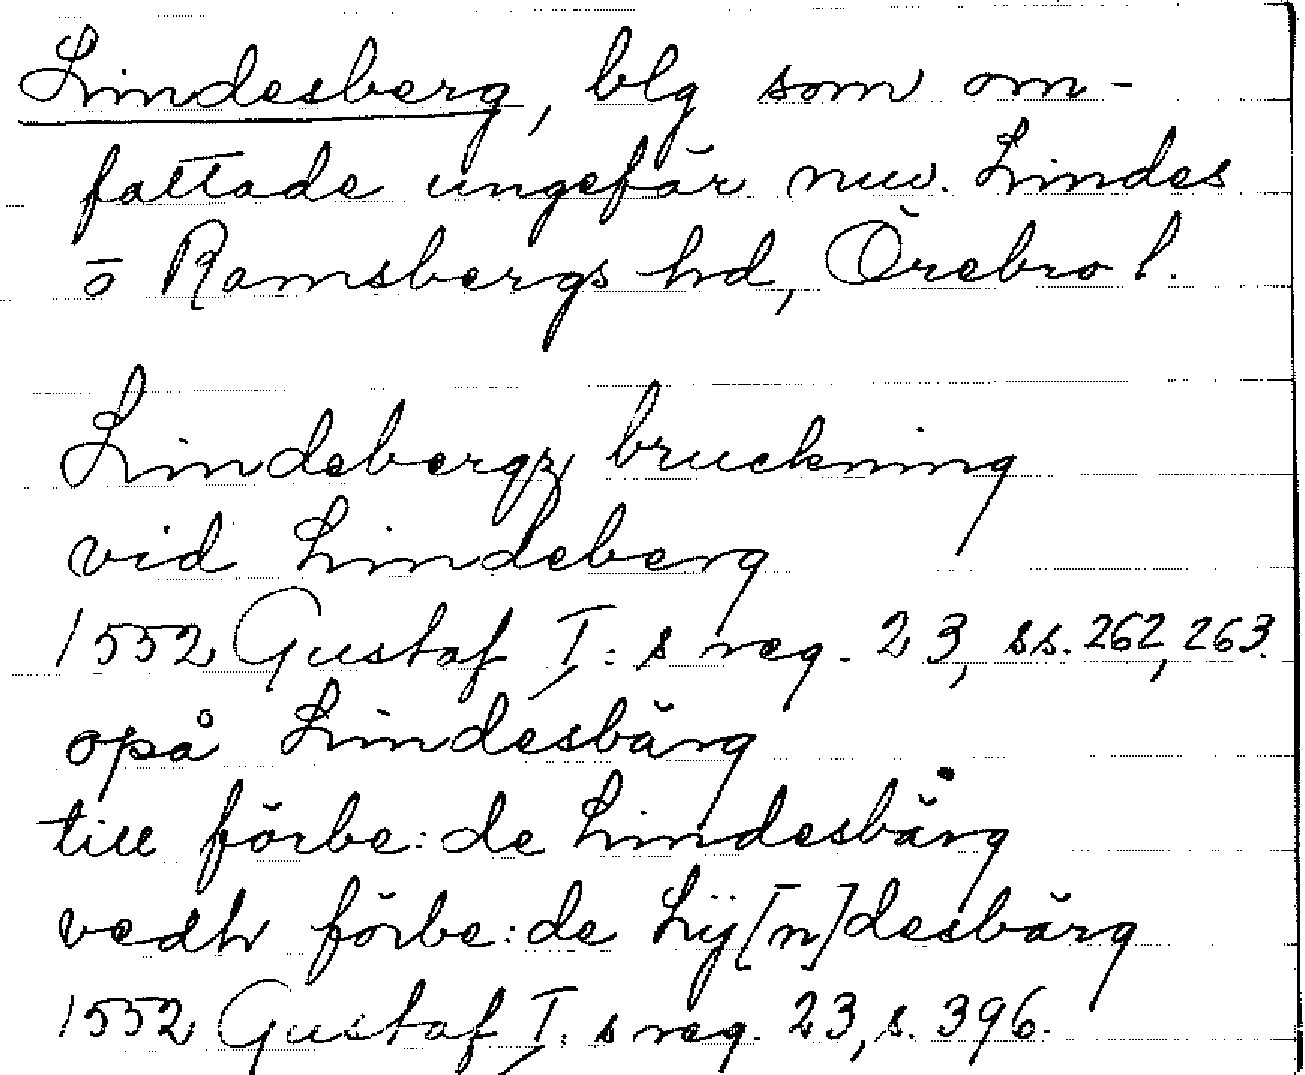 Lindesberg, blg som om-
fattade ungefär nuv. Lindes
o Ramsbergs hd, Örebro l.
Lindebergz bruckning
vid Lindeberg
1552 Gustaf I:s reg. 23, ss. 262, 263.
opå Lindesbärg
till förbe:de Lindesbärg
vedh förbe:de Lÿ[n]desbärg
1552 Gustaf I:s reg. 23, s. 396.